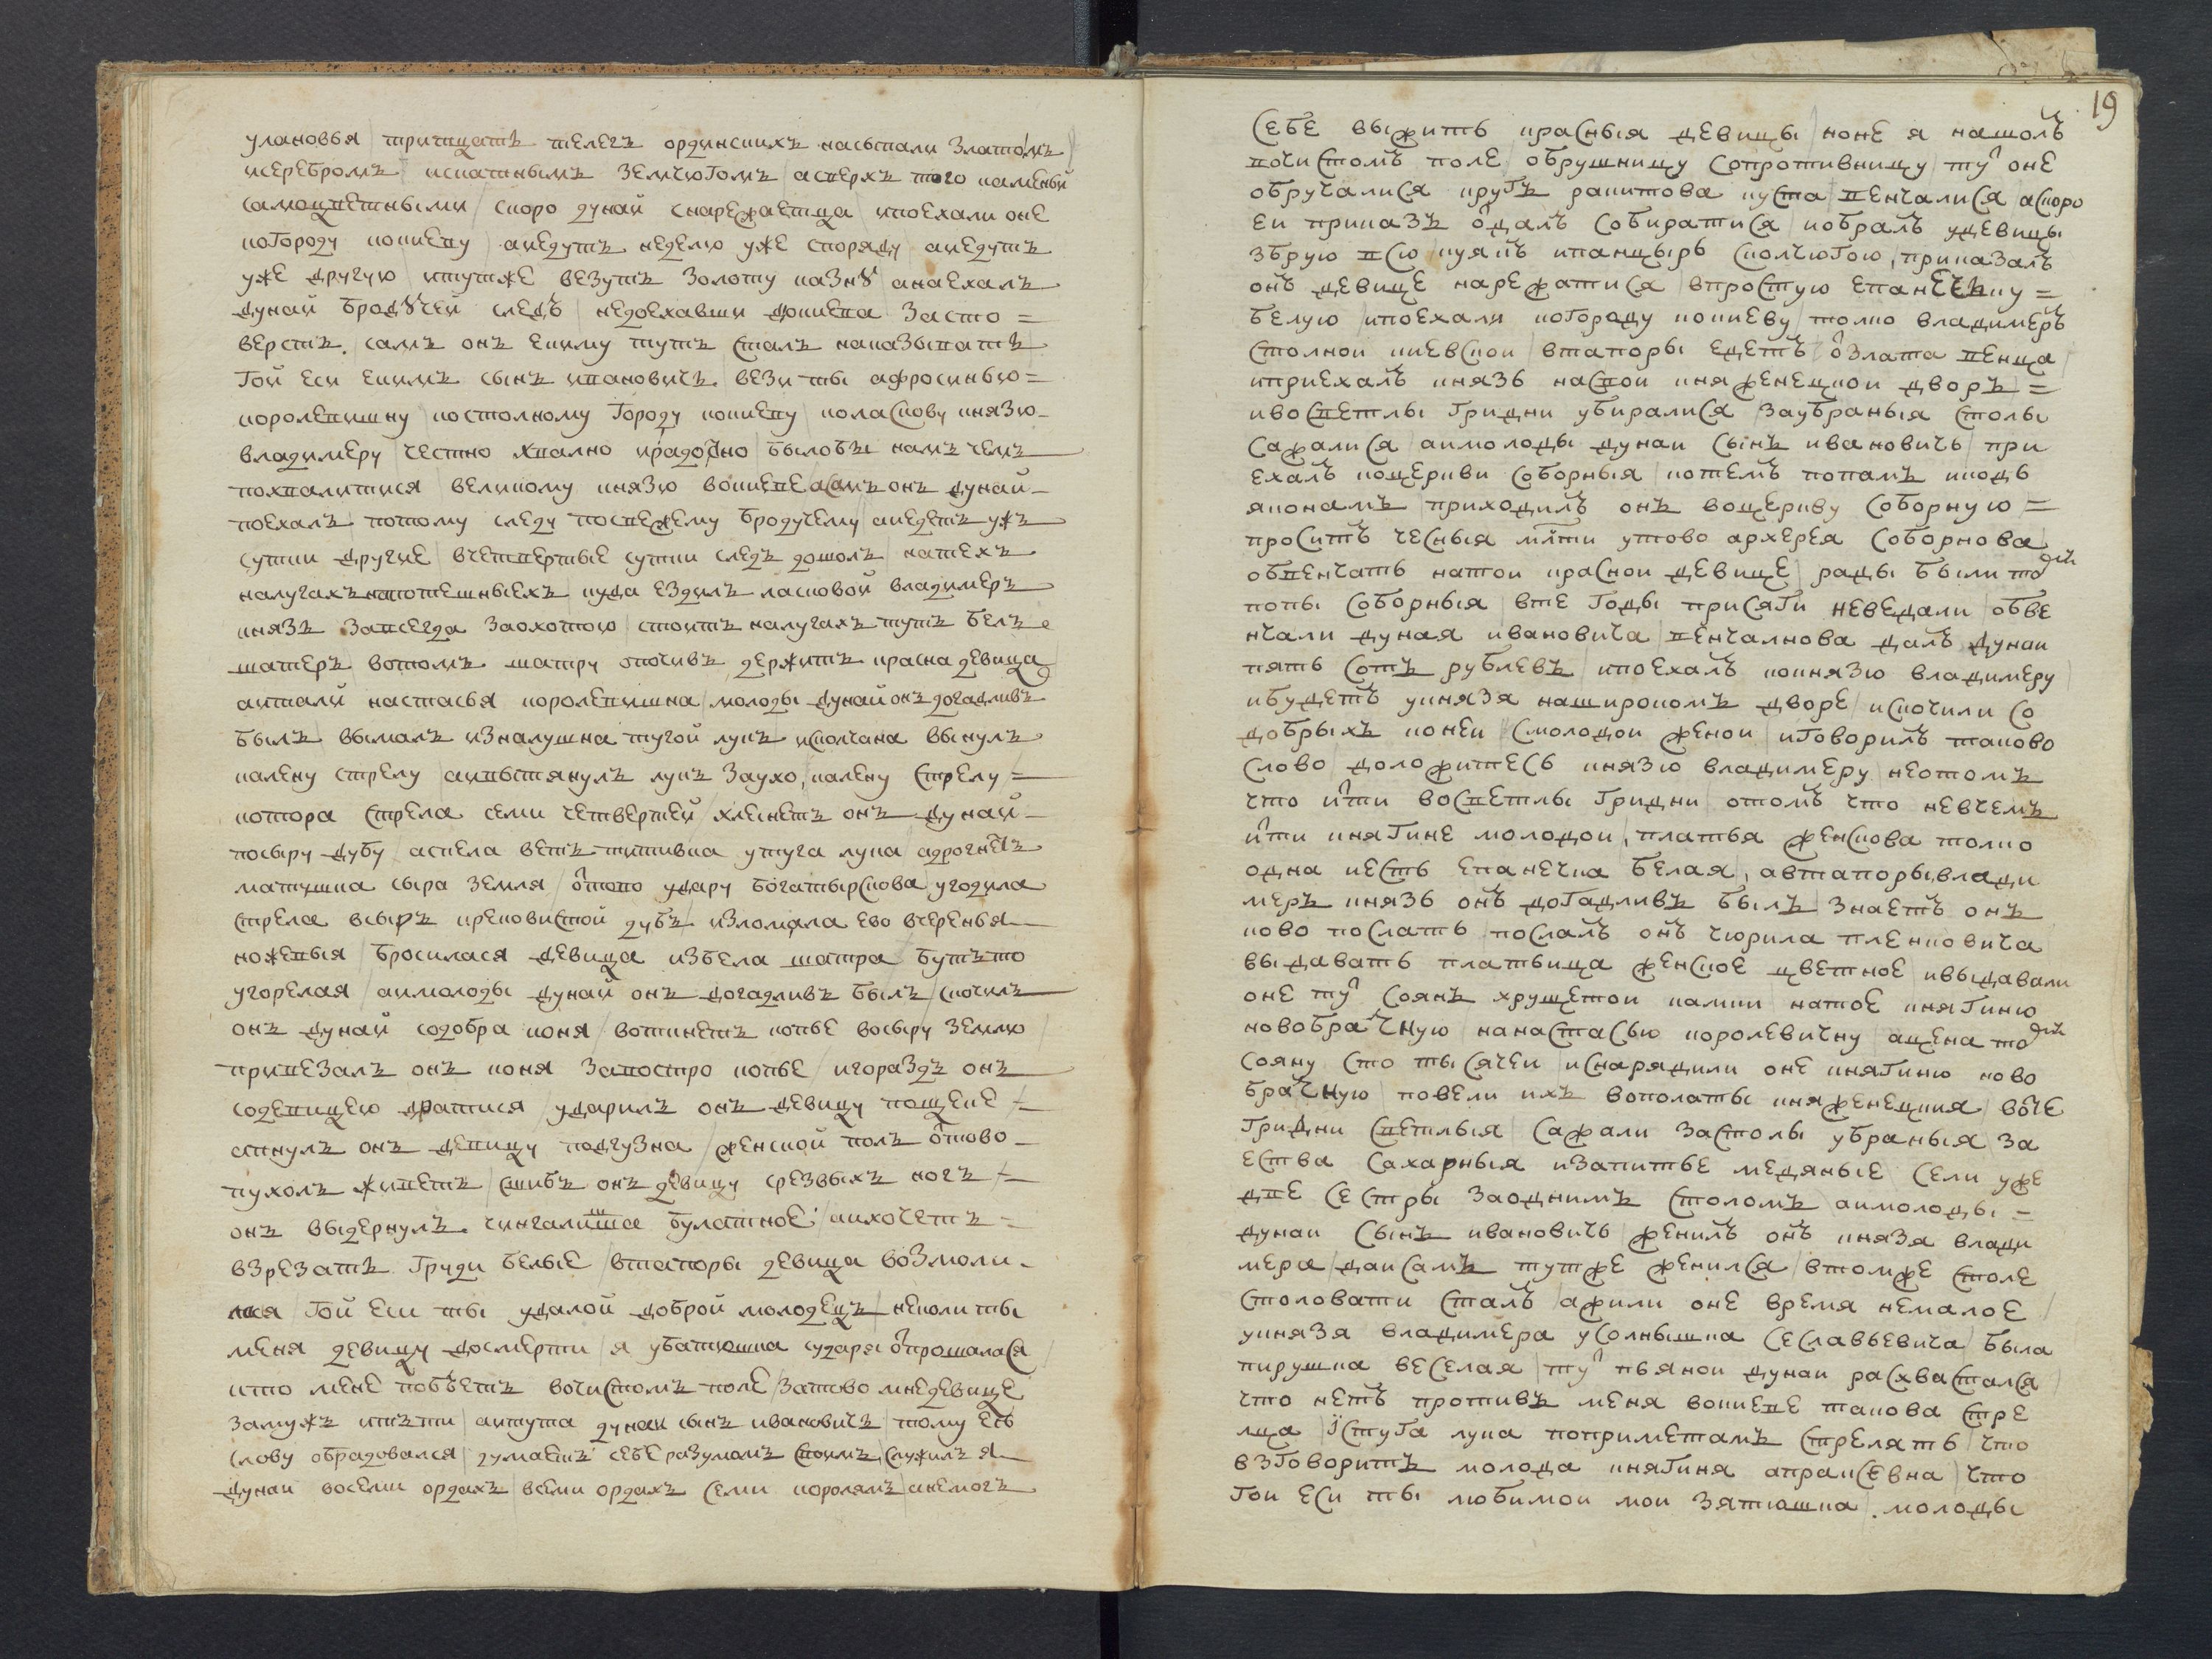 улановья / тритцать телегъ ординскихъ насыпали златомъ /
исеребромъ / искатнымъ земчюгомъ / асверхъ того каменьи
самоцветными / скоро дунай снарежаетца / ипоехали оне
кородy кокиеву / аиедутъ неделю уже споряду / аиедутъ
уже другую итутже везутъ золоту казнꙋ анаехалъ
дунай бродꙋчей следъ / недоехавши докиева засто =
верстъ. самъ онъ екиму тутъ сталъ наказыватъ
гой еси екимъ сынъ ивановичь. вези ты афросинью =
королевишну / костолному городу кокиеву / коласкову князю
владимеру / честно хвално ирадосно / былобы намъ чемъ
похвалитися / великому князю вокиеве асамъ онъ дунай
поехалъ потому следу поспежему бродучему / аиедетъ ужъ
сутки другие / вчетвертые сутки следъ дошолъ / натехъ
налугахъ напотешныехъ / куда ездилъ ласковой владимеръ
князь завсегда заохотою / стоитъ налугахъ тутъ белъ
шатеръ / вотомъ шатру опочивъ держитъ красна девица
аитали настасья королевишна / молоды дунай онъ догадливъ
былъ / вымалъ изналушна тугой лукъ / исколчана вынулъ
калену стрелу / аивытянулъ лукъ заухо, калену стрелу /
котора стрела семи четвертей / хлеснетъ онъ дунай
посыру дубу / аспела ветъ титивка утуга лука / адрогнетъ
матушка сыра земля / отово удару богатырскова / угодила
стрела всыръ креповистой дубъ / изломала ево вчеренья
ножевыя / бросилася девица избела шатра бутьто
угорелая / аимолоды дунай онъ догадливъ былъ / скочилъ
онъ дунай содобра коня / вотикнетъ копье восыру землю /
привезалъ онъ коня завостро копье / игораздъ онъ
содевицею дратися / ударилъ онъ девицу пощеке /
апнулъ онъ девицу подгузна / женской полъ отово
пухолъ живетъ / сшибъ онъ девицу срезвыхъ ногъ /
онъ выдернулъ. чингалища булатное / аихочетъ =
взрезатъ груди белые / втапоры девица возмоли
лася / гой еси ты удалой доброй молодецъ / неколи ты
меня девицу досмерти / я убатюшка сударя отпрошалася /
кто мене побъетъ вочистомъ поле / затово мнедевице
замужъ итъти / аитута дунаи сынъ ивановичъ / тому ево
слову обрадовался / думаетъ себе разумомъ своимъ, служилъ я
дунаи восеми ордахъ / всеми ордахъ семи королямъ / анемогъ
19
себе выжить красныя девицы / ноне я нашолъ
вочистомъ поле / обрушницу сопротивницу / тут оне
обручалися кругъ ракитова куста / венчалися / аскоро
ей приказъ отдалъ собиратися / иобралъ удевицы
збрую всю / куякъ ипанцырь сколчюгою, приказалъ
онъ девице нарежатися / впростую епанечьку =
белую / ипоехали когораду кокиеву / толко владимеръ
столнои киевскои / втапоры едетъ отзлата венца /
иприехалъ князь насвои княженецкои дворъ =
ивосветлы гридни убиралися / заубраныя столы
сажалися / аимолоды дунаи сынъ ивановичь / при
ехалъ коцеркви соборныя / котемъ попамъ икодь
яконамъ / приходилъ онъ воцеркву соборную =
проситъ чесныя млти утово архерея соборнова
обвенчать натои краснои девице / рады были то дки
попы соборныя / вте годы присяги неведали / обве
нчали дуная ивановича / венчалнова далъ дунаи
пять сотъ рублевъ / ипоехалъ кокнязю владимеру /
ибудетъ укнязя нашироком дворе / искочили со
добрыхъ конеи / смолодои женои / иговорилъ таково
слово / доложитесь князю владимеру / неотомъ
что итти восветлы гридни / отомъ что невчемъ
итти княгине молодои, платья женскова толко
одна иесть епанечка белая, автапоры влади
меръ князь онъ догадливъ былъ / знаетъ онъ
ково послать / послалъ онъ чюрила пленковича
выдавать платьица женское цветное / ивыдавали
оне тут соянъ хрущетои камки натое княгиню
новобрачную / нанастасью королевичну / ацена то дки
сояну сто тысячеи / иснарядили оне княгиню ново
брачную / повели ихъ вополаты княженецкия / воте
гридни светлыя / сажали застолы убраныя / за
ества сахарныя изапитье медяные / сели уже
две сестры заоднимъ столомъ / аимолоды =
дунаи сынъ ивановичь / женилъ онъ князя влади
мера / даисамъ тутже женился / втомже столе
столовати сталъ / ажили оне время немалое /
укнязя владимера усолнышка сеславьевича / была
пирушка веселая / тут пьянои дунаи расхвастался /
что нетъ противъ меня вокиеве такова стре
лца / ïстуга лука поприметамъ стрелять / что
взговоритъ молода княгиня апраксевна / что
гои еси ты любимои мои зятюшка / молоды